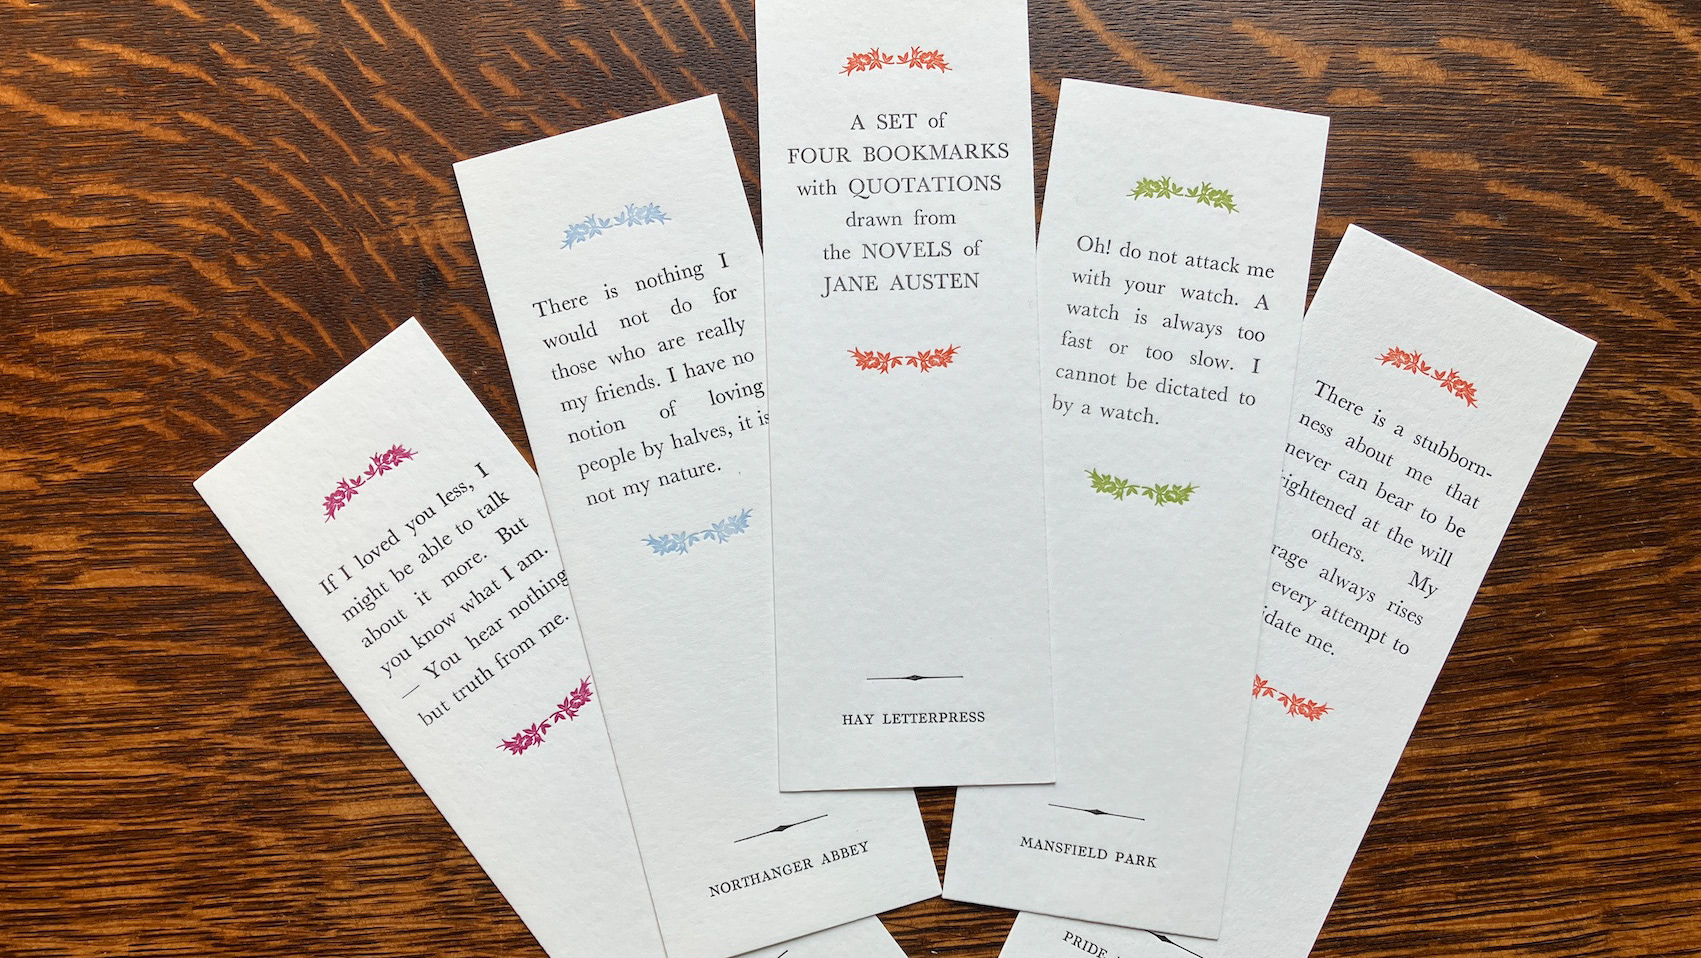 If I loved you less, I
might be able to talk
about it more. But
you know what I am.
— You hear nothing
but truth from me.
There is nothing I
would not do for
those who are really
my friends. I have no
notion of loving
people by halves, it is
not my nature.
NORTHANGER ABBEY
A SET of
FOUR BOOKMARKS
with QUOTATIONS
drawn from
the NOVELS of
JANE AUSTEN
HAY LETTERPRESS
Oh! do not attack me
with your watch. A
watch is always too
fast or too slow. I
cannot be dictated to
by a watch.
MANSFIELD PARK
There is a stubborn-
ness about me that
never can bear to be
ightened at the will
others. My
rage always rises
every attempt to
idate me.
PRIDE